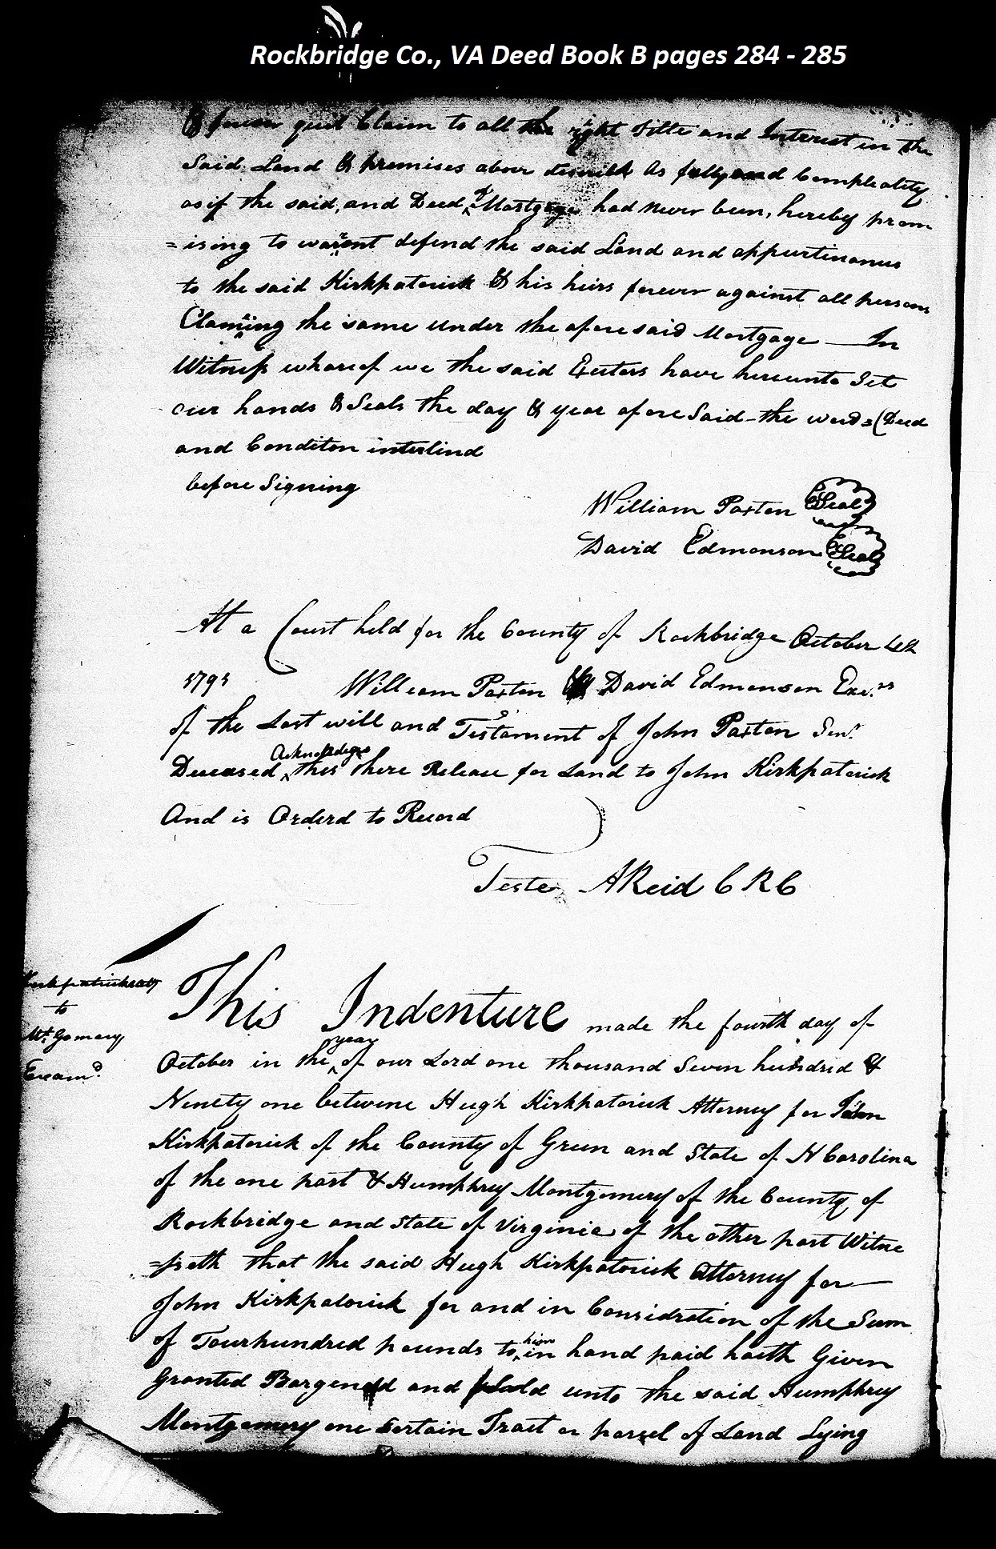 Rockbridge Co., VA Deed Book B pages 284 - 285
& forever quit Claim to all the right Title and Interest in the
Said Land & premises above describd As fully and Compleatly
as if the said, and Deed, & Mortgage had Never been, hereby prom
=ising to warent defend the said Land and appurtinanus
to the said Kirkpaterick & his heirs forever against all persons
Claming the same under the aforesaid Mortgage — In
Witness whareof we the said Exetors have hereunto Set
our hands & Seals the day & year afore Said - the words (Deed
and Conditon interlind
before Signing
William Paxten Seal
David Edmonson Seal
At a Court held for the County of Rockbridge October 4th
1791 William Paxten & David Edmonson Exe.rs
of the Last will and Testament of John Paxton Senr.
Acknowledge
Deceased ^ this there Release for Land to John Kirkpaterick
And is Orderd to Record
Teste AReid C R C
Kirkpatrick atty
to
Mt.Gomery
Examd.
This Indenture made the fourth day of
year
October in the ^ of our Lord one thousand Seven hundrid &
Ninety one betwene Hugh Kirkpaterick Attorney for John
Kirkpaterick of the County of Green and State of N Carolina
of the one part & Humphrey Montgomery of the County of
Rockbridge and State of Virginia of the other part Witne
=sseth that the said Hugh Kirkpaterick Attorney for
John Kirkpaterick for and in Considration of the Sum
him
of Fourhundred pounds to ^ in hand paid hath Given
Granted Bargened and Sold unto the said Humphrey
Montgomery one Certain Tract or parsel of Land Lying